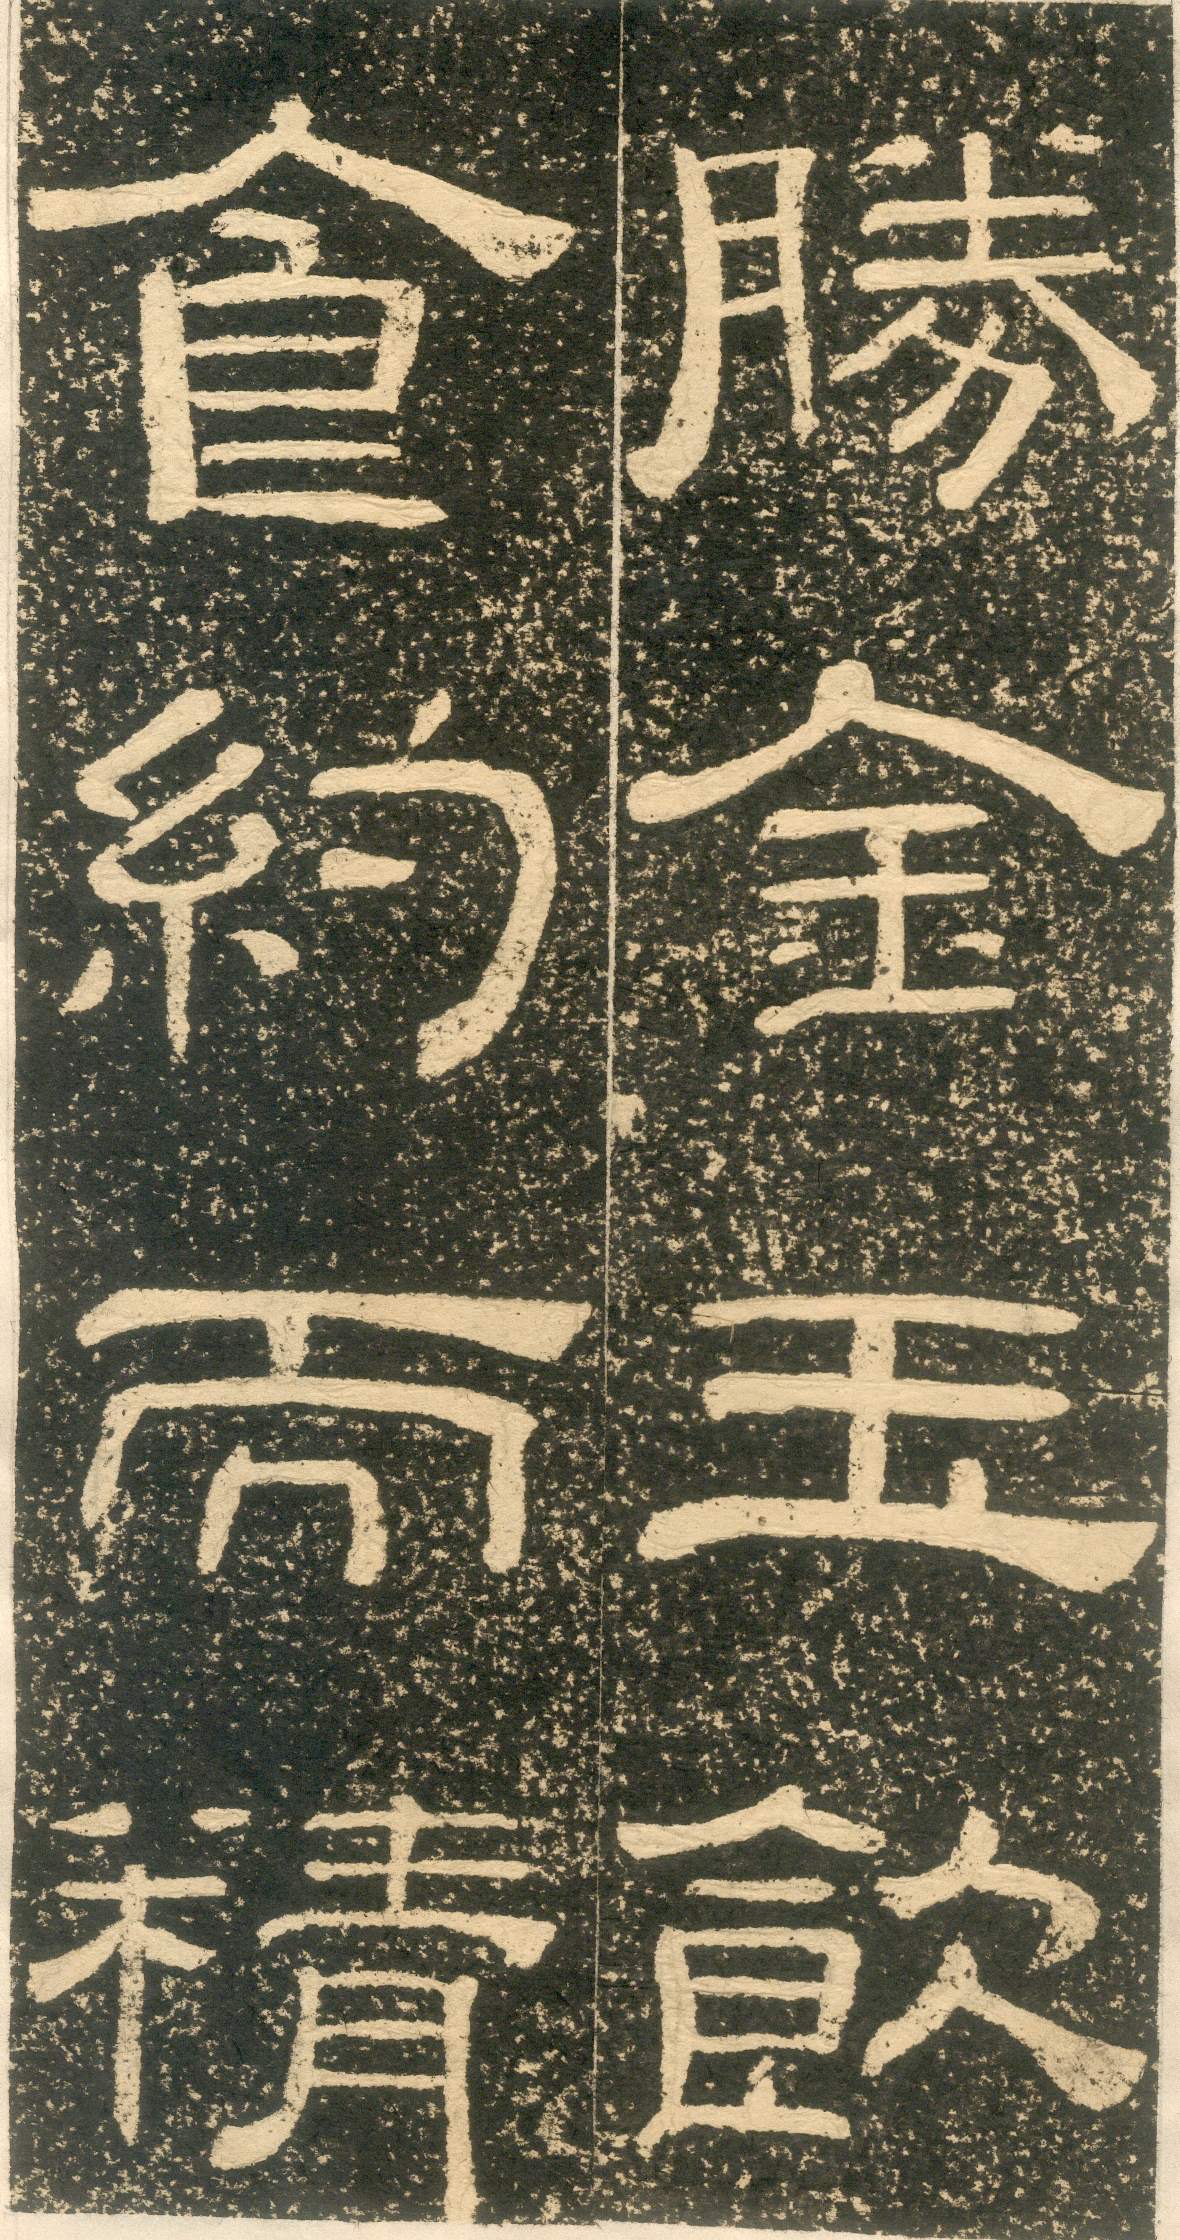 勝金玉飲
食約而精